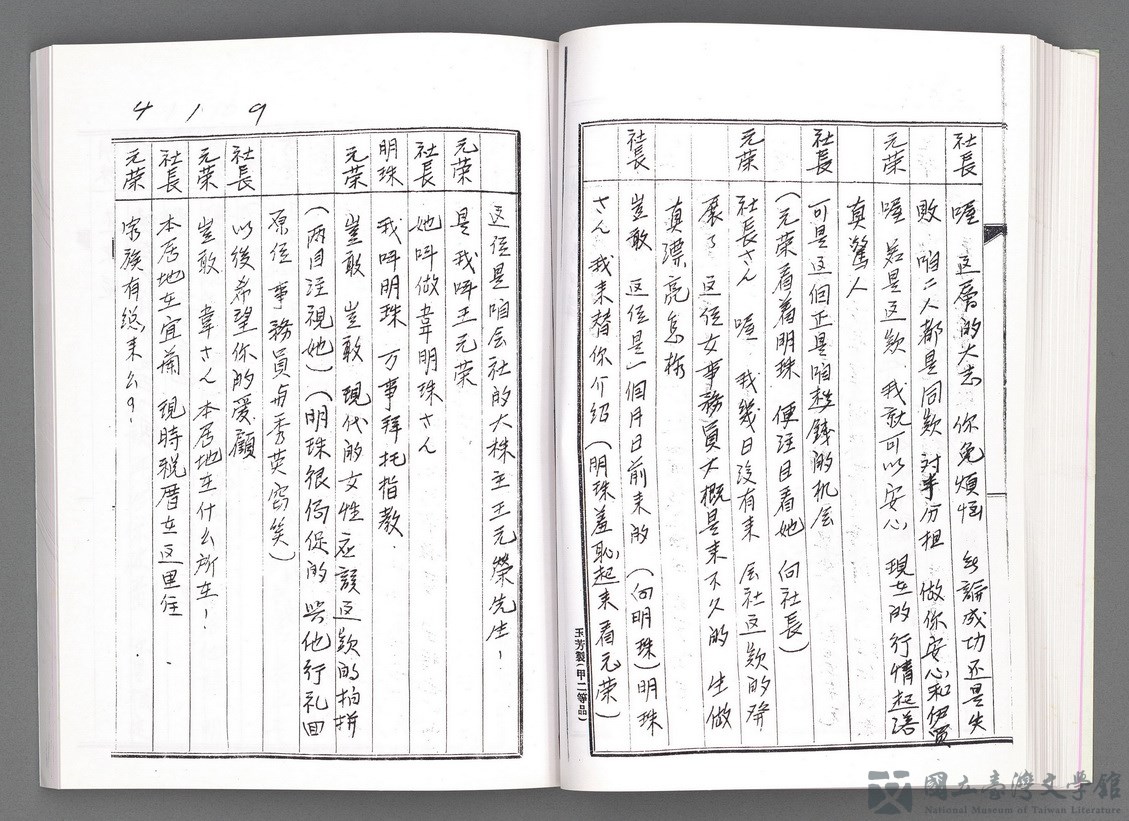 社長 喔 这層的大志 你免煩惱 無論成功还是失
敗 咱二人都是同款 对事分担 做你安心和伊買
元荣 喔 若是這欵 我就可以安心 現在的行情起落
真驚人
社長 可是这個正是咱趁錢的机会
(元荣看着明珠 便注目看她 向社長)
元荣 社長さん 喔 我幾日没有来 会社这款的發
展了 这位女事務員大概是来不久的 生做
真漂亮怎様
社長 豈敢 这位是一個月日前来的 (向明珠) 明珠
さん 我来替你介紹 (明珠羞恥起来看元荣)
玉芳製(甲二等品)
这位是咱会社的大株主王元榮先生!
元荣 是 我叫王元荣
社長 她叫做韋明珠さん
明珠 我叫明珠 万事拜托指教.
元荣 豈敢 豈敢 現代的女性应該这款的拍拼
(两目注視她) (明珠很侷促的 与他行礼回
原位 事務員与秀英窃笑)
社長 以後希望你的愛顧
元荣 豈敢 韋さん 本居地在什么所在!
社長 本居地在宜蘭 現時税厝在这里住.
元荣 家族有総来么?
4 1 9
國立臺灣文學館
National Museum of Taiwan Literature